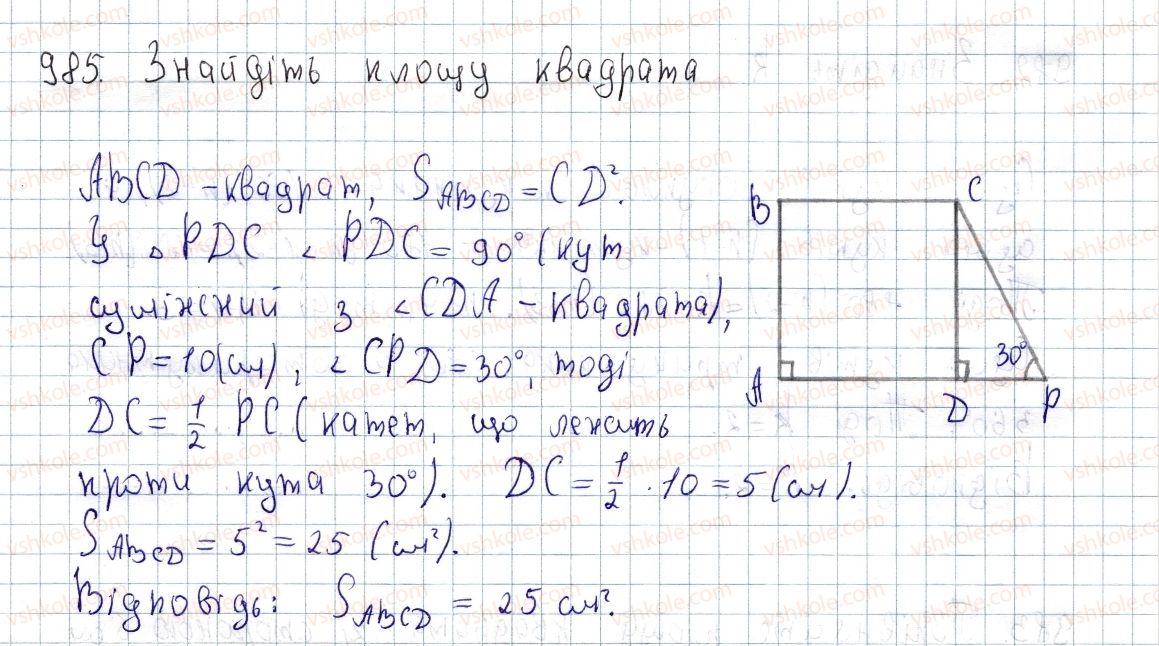 985. Знайдіть площу квадрата
ABCD – квадрат, S_ABCD = CD².
У △ PDC ∠ PDC = 90° (кут
суміжний з ∠CDA – квадрата),
CP = 10(см), ∠ CPD = 30°, тоді
DC = 1/2 PC (катет, що лежить
проти кута 30°). DC = 1/2 · 10 = 5 (см).
S_ABCD = 5² = 25 (см²).
Відповідь: S_ABCD = 25 см².
B C
30°
A D P
vshkole.com